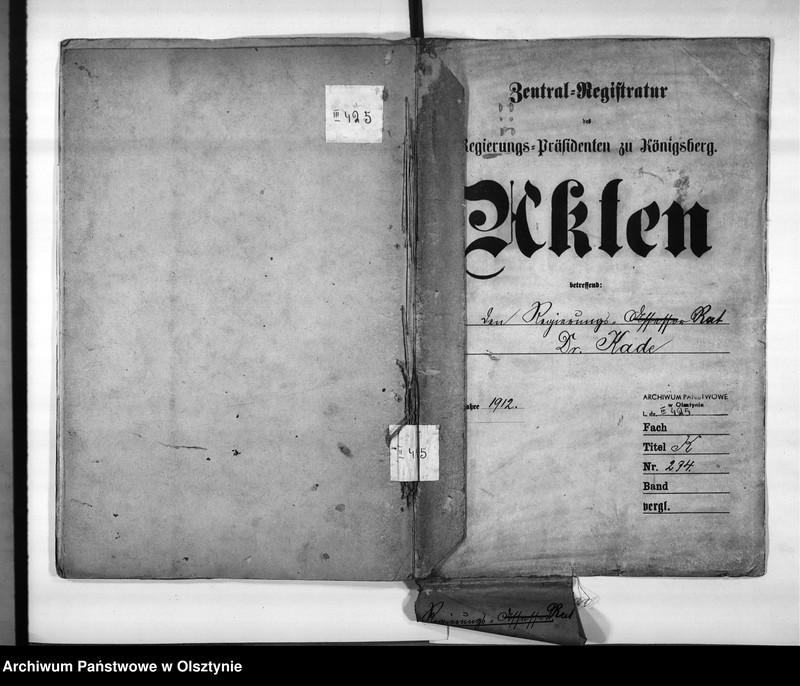 III 425
Zentral=Registratur
des
Regierungs=Präsidenten zu Königsberg.
Akten
betreffend:
den Regierungs-Assessor Rat
Dr. Kade
Jahre 1912.
ARCHIWUM PAŃSTWOWE
w Olsztynie
L. dz. III 425
Fach
Titel K
Nr. 294.
Band
vergl.
Regierungs-Assessor Rat
Archiwum Państwowe w Olsztynie